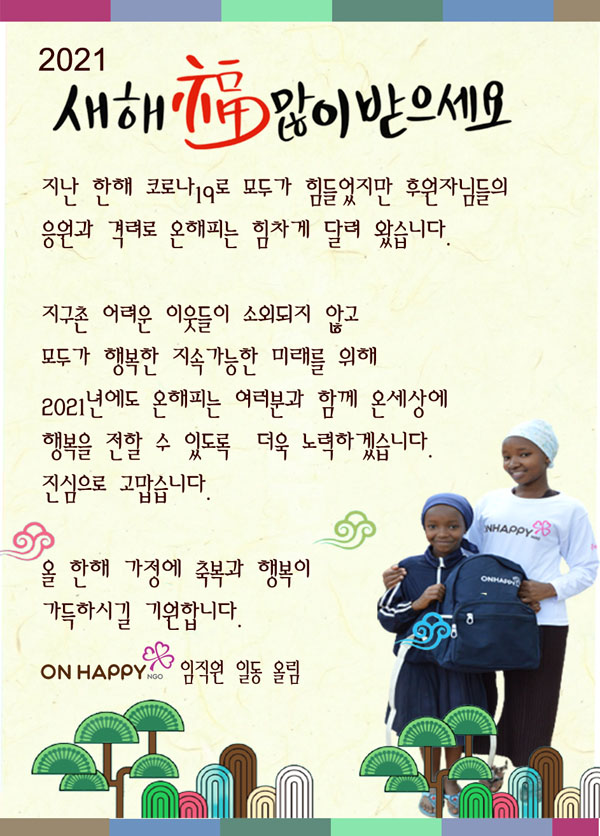 2021
새해 福 많이 받으세요
지난 한해 코로나19로 모두가 힘들었지만 후원자님들의
응원과 격려로 온해피는 힘차게 달려 왔습니다.
지구촌 어려운 이웃들이 소외되지 않고
모두가 행복한 지속가능한 미래를 위해
2021년에도 온해피는 여러분과 함께 온세상에
행복을 전할 수 있도록 더욱 노력하겠습니다.
진심으로 고맙습니다.
ONHAPPY NGO
ONHAPPY
올 한해 가정에 축복과 행복이
가득하시길 기원합니다.
ON HAPPY NGO 임직원 일동 올림